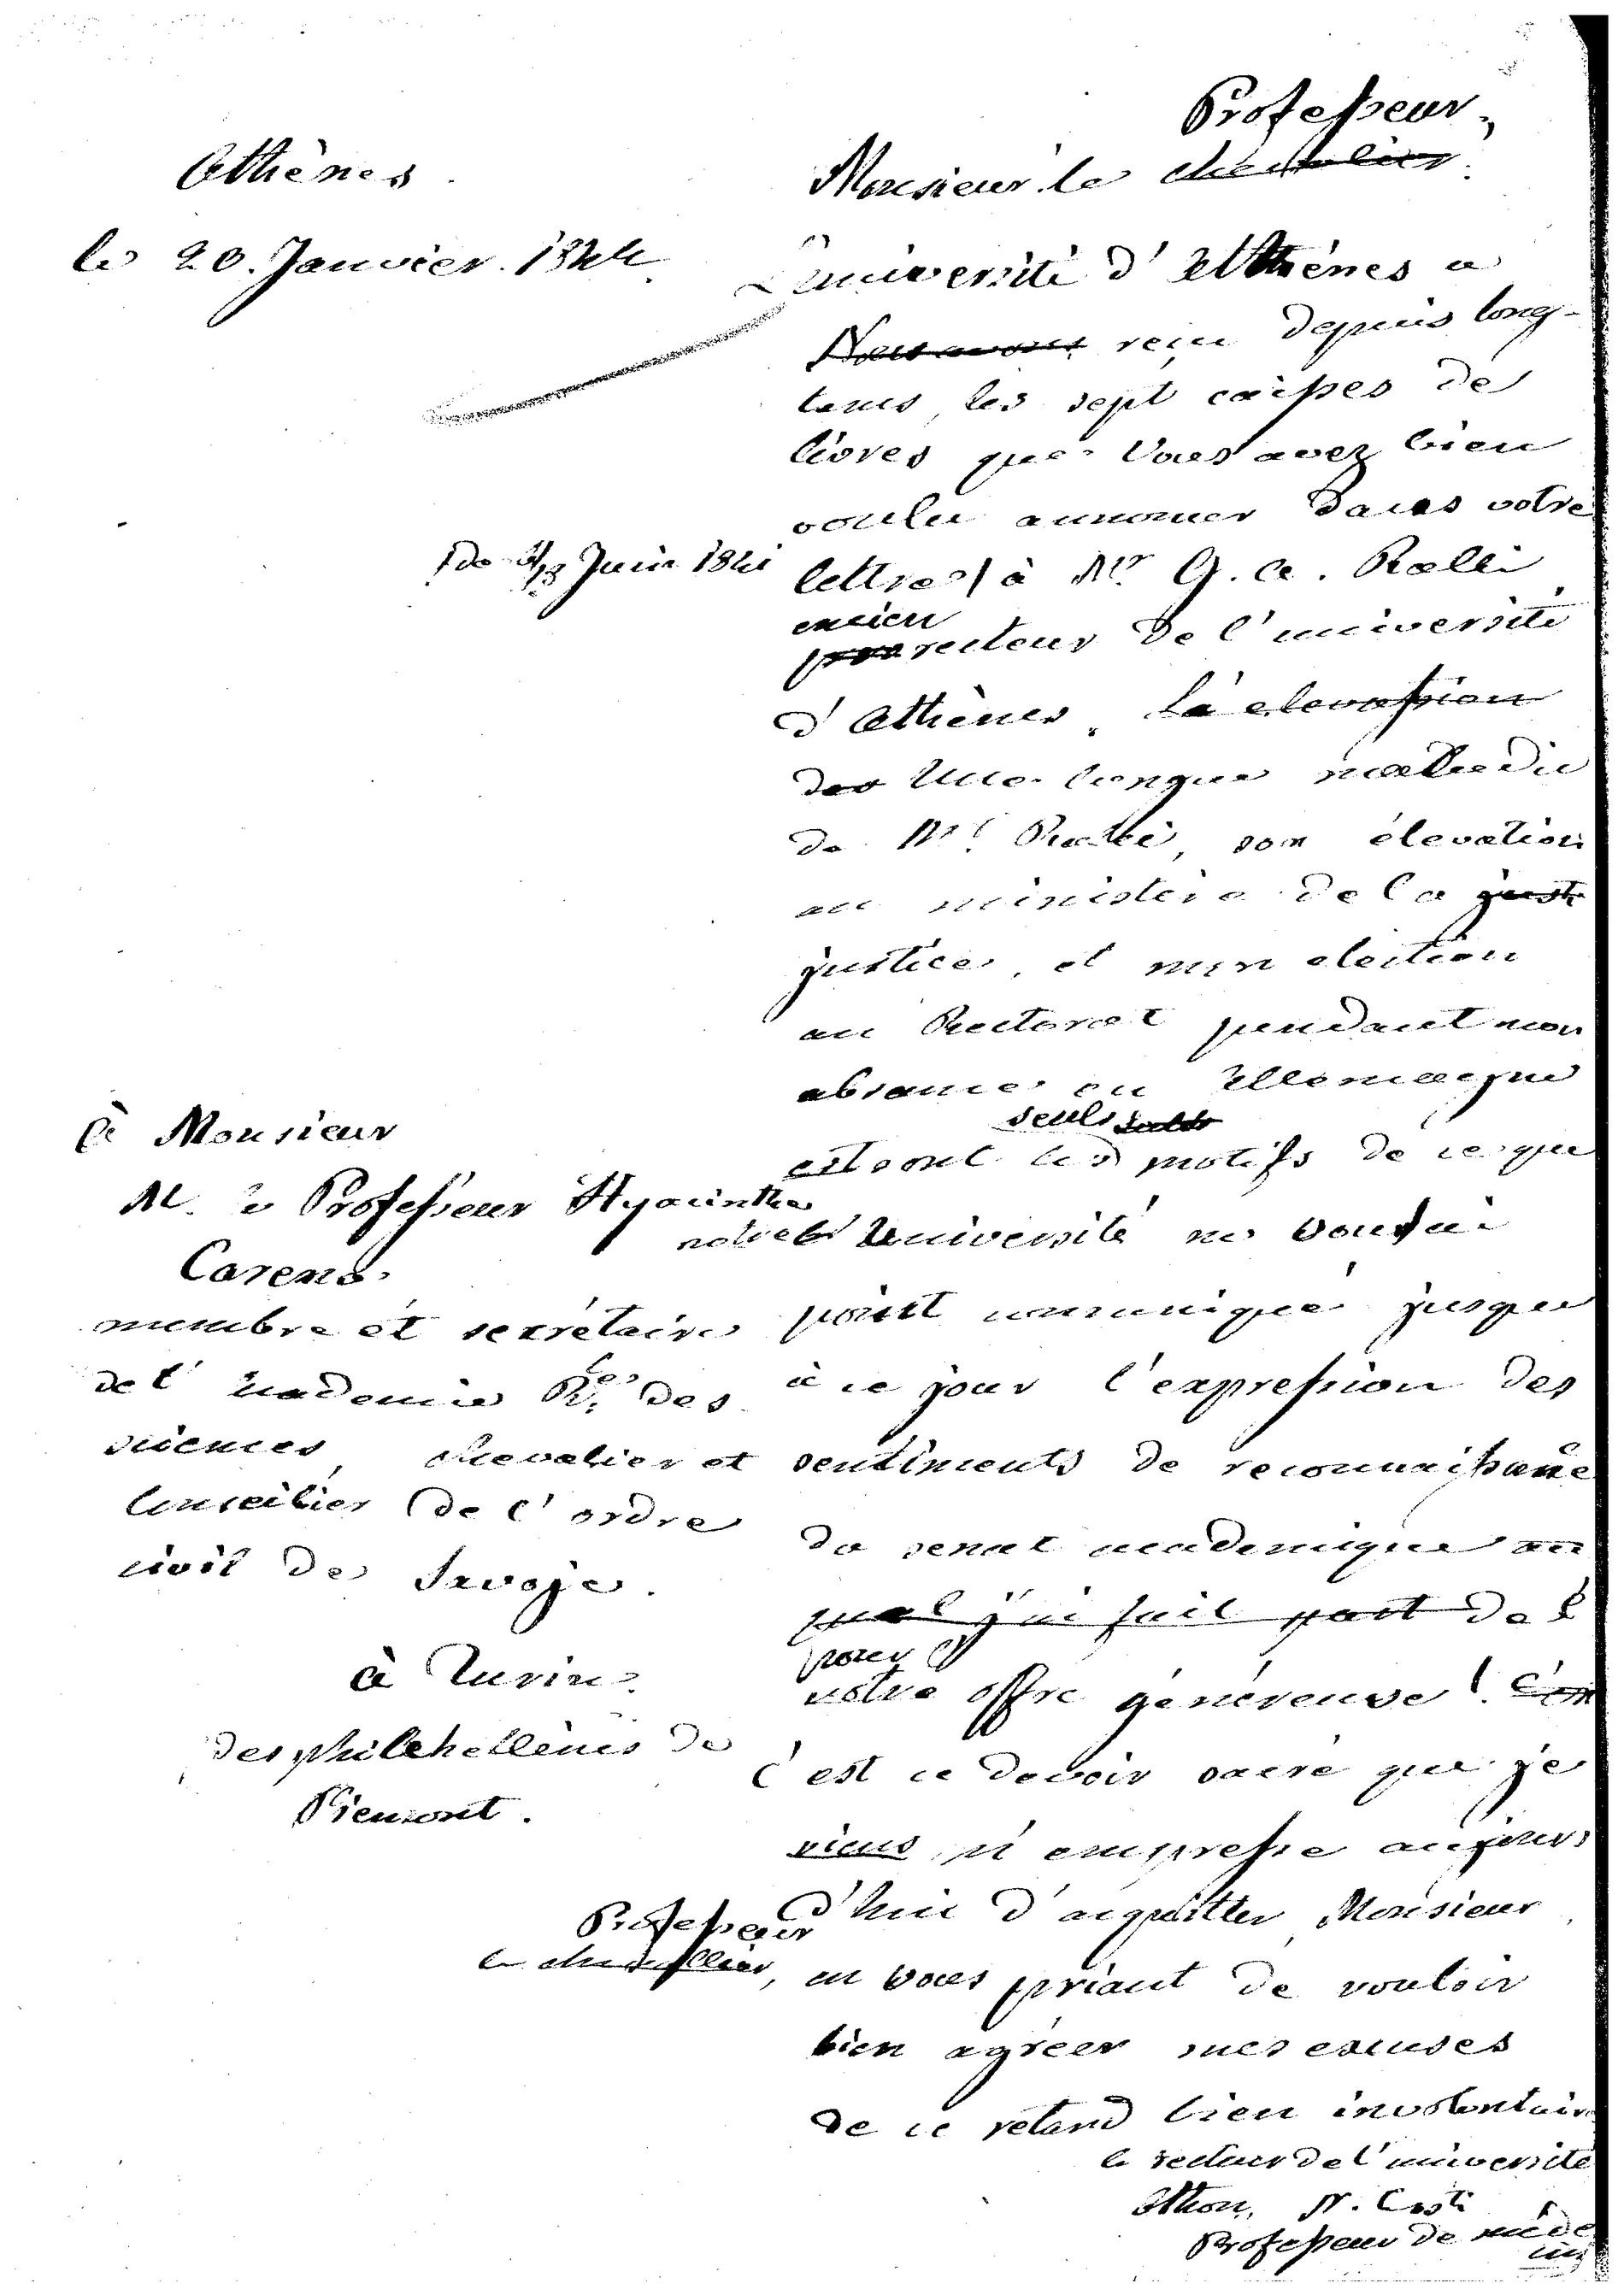 Athènes
le 20. Janvier. 1844.
Professeur,
Monsieur le chevalier.
L'université d'Athènes a
Nous avons reçu depuis long-
tems, les sept caisses de
livres que Vous avez bien
voulu annoncer dans votre
lettre à Mr. G. A. Ralli
de Juin 184
ancien
pro recteur de l'université
d'Athènes. La elevassion
des Une longue maladie
de Mr. Ralli, son élevation
au ministère de la just
justice, et mon election
au Rectorat pendant mon
absance en Allemagne
seuls
sont les motifs de ce que
notre Université ne Vous ai
point comuniqué jusqu
à ce jour l'expression des
sentiments de reconnaissance
du senat academique au
quel j'ai fait part de l
pour
votre offre généreuse. C'es
C'est ce devoir sacré que je
viens m'empresse aujour
d'hui d'acquitter, Monsieur
Professeur
le chevallier, en vous priant de vouloir
bien agréer mes excuses
de ce retard bien involontair
le recteur de l'université
Othon, N. Costi
Professeur de méde
cin
à Monsieur
M. le Professeur Hyacinthe
Carena.
membre et secrétaire
de l'Academie Rle. des
sciences, chevalier et
Conseilier de l'ordre
civil de Savoje.
à Turin.
des philehellènes de
Piemont.